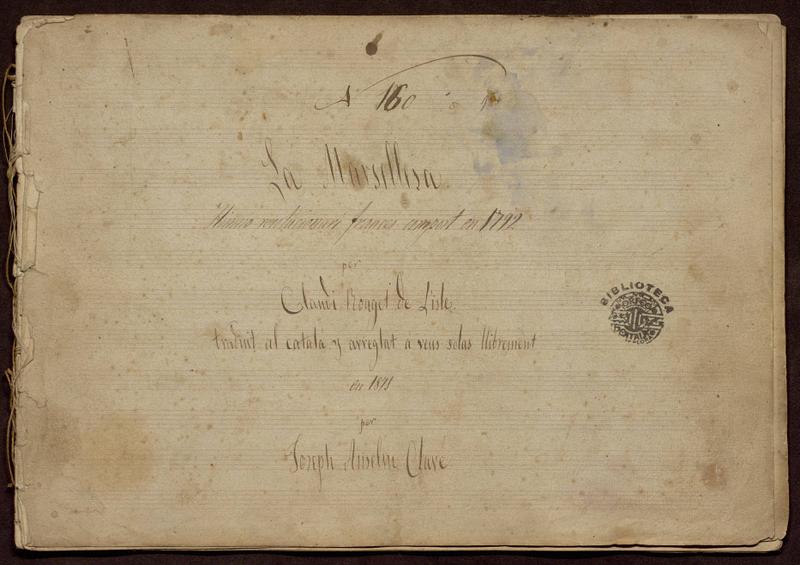 Nº 160
La Marsellesa
Himno revolucionari francés compost en 1792
per
Claudi Rouget de Lisle
traduit al catalá y arreglat a veus solas llibrement
en 1871
per
Joseph Anselm Clavé
BIBLIOTECA